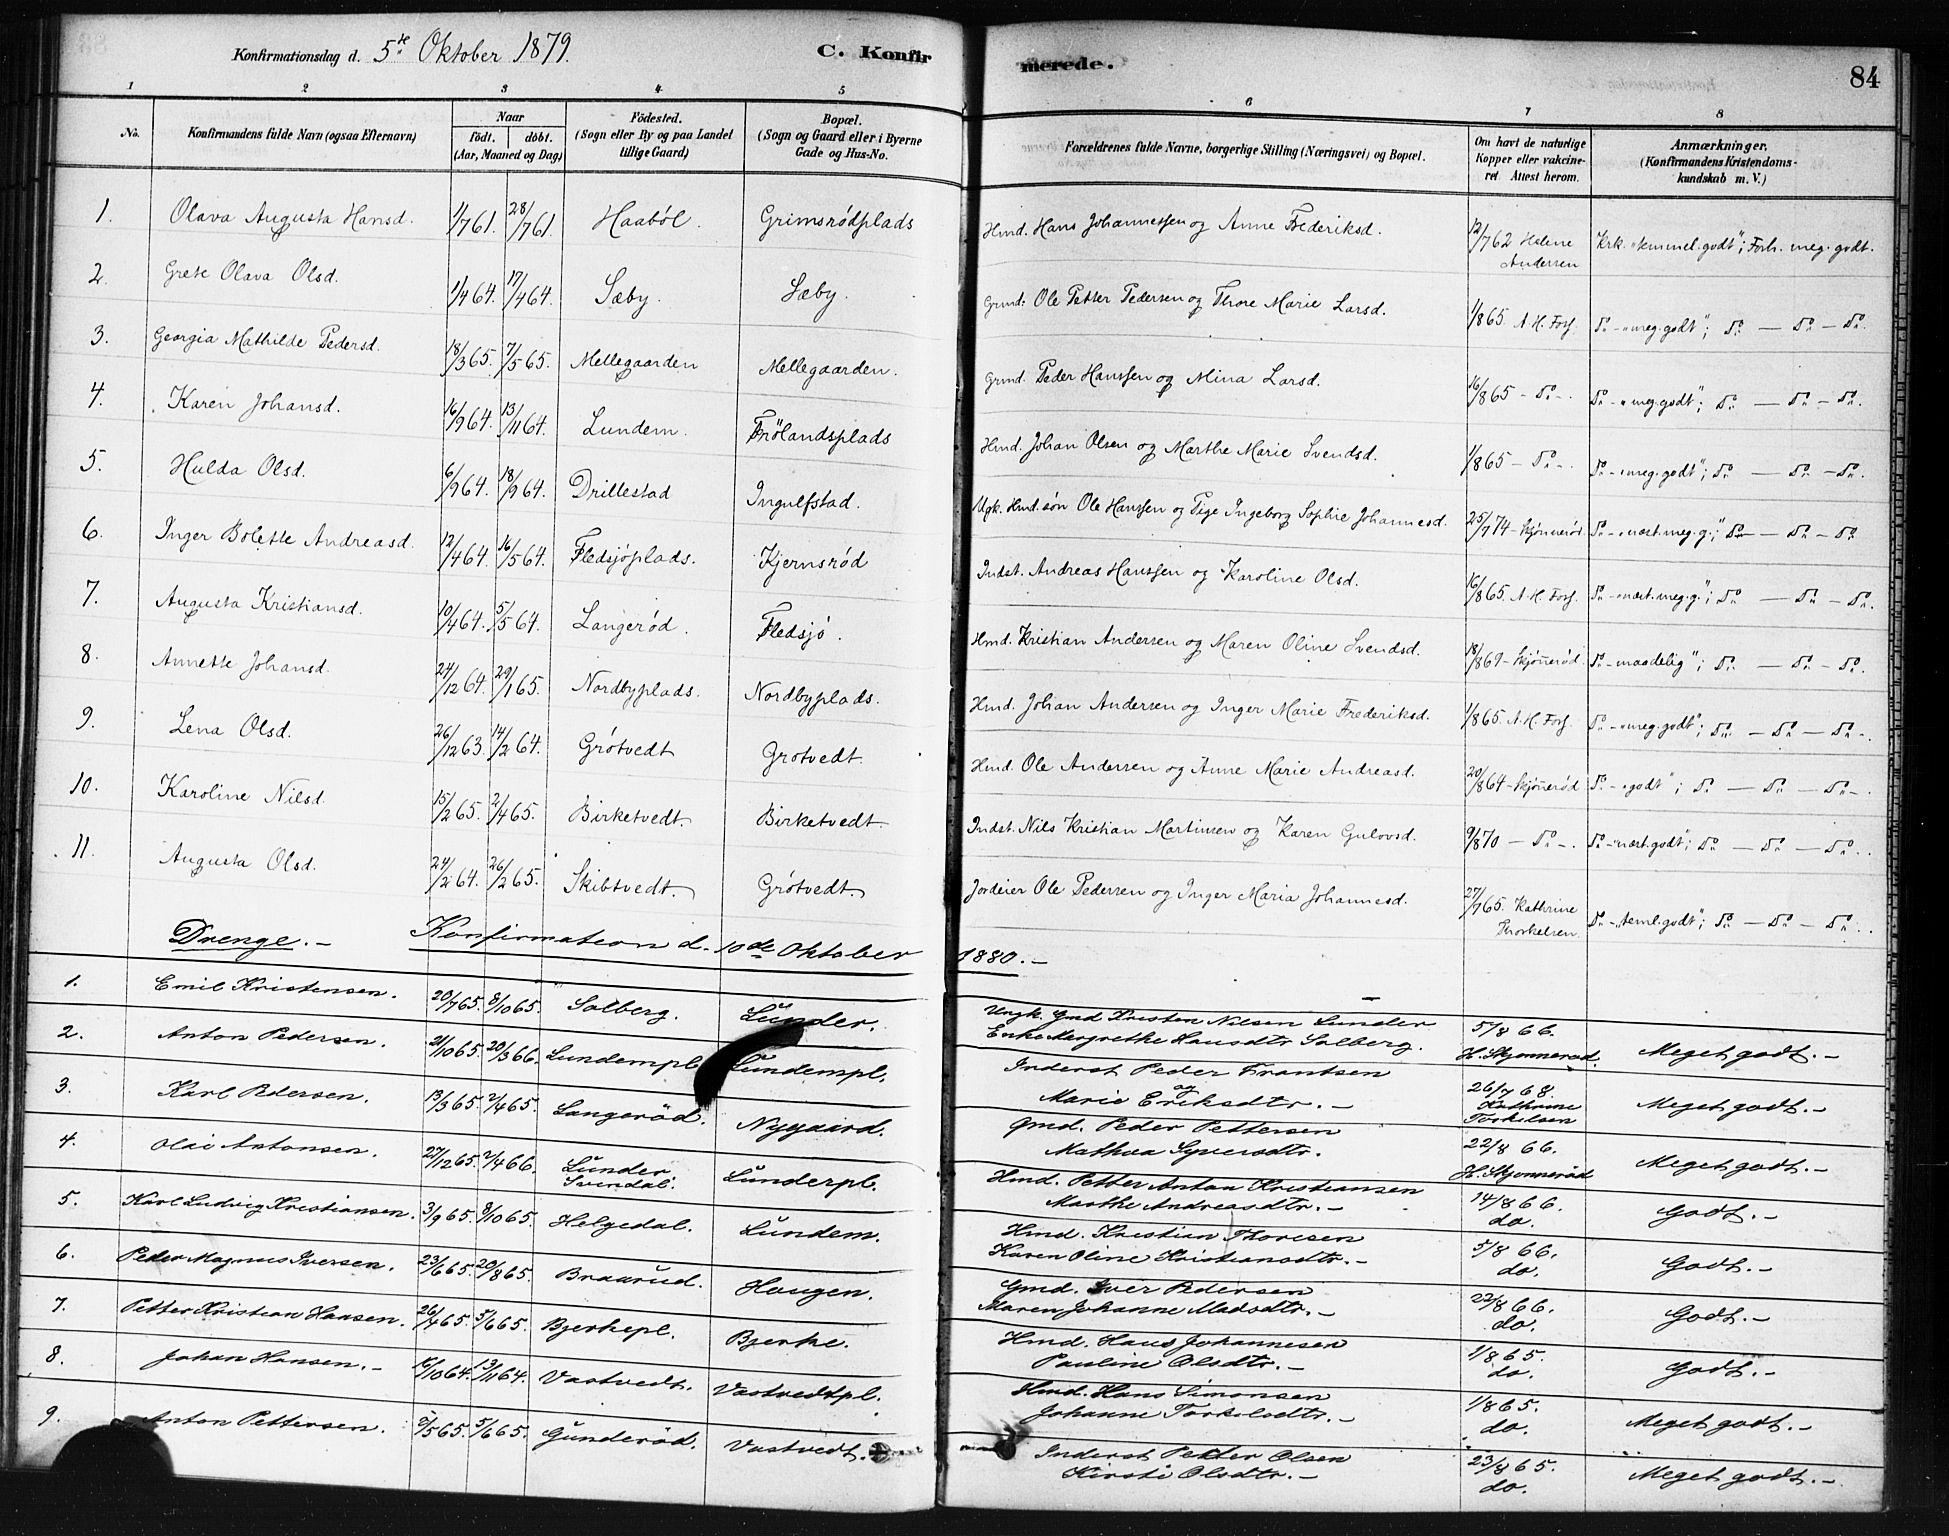 Konfirmationsdag d. 5te Oktober 1879. C. Konfirmerede. 84
1 2 3 4 5 6 7 8
No. Konfirmandens fulde Navn (ogsaa Efternavn) Naar født. døbt. (Aar, Maaned og Dag) Fødested. (Sogn eller By og paa Landet tillige Gaard) Bopæl. (Sogn og Gaard eller i Byerne Gade og Hus-No. Forældrenes fulde Navne, borgerlige Stilling (Næringsvei) og Bopæl. Om havt de naturlige Kopper eller vakcineret Attest herom. Anmærkninger. (Konfirmandens Kristendomskundskab m. V.)
1. Olava Augusta Hansd. 1/7 61. 28/7 61. Haaböl. Grimsrödplads Hmd. Hans Johannessen og Anne Frederiksd. 12/7 62 Helene Andersen Krk. "temmel. godt"; Forh. meg. godt.
2. Grete Olava Olsd. 1/4 64. 17/4 64. Sæby. Sæby. Grmd. Ole Petter Pedersen og Thore Marie Larsd. 1/8 65. A. H. Forf. Do - "meg. godt"; Do — Do — Do.
3. Georgia Mathilde Pedersd. 18/3 65. 7/5 65. Mellegaarden Mellegaarden. Grmd. Peder Hanssen og Mina Larsd. 16/8 65 - Do -. Do - "meg. godt"; Do — Do — Do.
4. Karen Johansd. 16/9 64. 13/11 64. Lundem. Frölandsplads Hmd. Johan Olsen og Marthe Marie Svendsd. 1/8 65 - Do -. Do - "meg. godt"; Do — Do — Do.
5. Hulda Olsd. 6/9 64. 18/9 64. Drillestad Ingulfstad. Ugk. Hmd. sön Ole Hanssen og Pige Ingeborg Sophie Johannesd. 25/7 74 - Skjønnerød Do - "næst. meg. g."; Do — Do — Do
6. Inger Bolette Andreasd. 12/4 64. 16/5 64. Fledsjöplads. Kjernsröd Indst. Andreas Hanssen og Karoline Olsd. 16/8 65. A. H. Forf. Do - "næst. meg. g."; Do — Do — Do.
7. Augusta Kristiansd. 10/4 64. 5/5 64. Langeröd. Fledsjö. Hmd. Kristian Andersen og Maren Oline Svendsd. 18/8 69 - Skjønnerød. Do - "maadelig"; Do — Do — Do.
8. Annette Johansd. 24/12 64. 29/1 65. Nordbyplads. Nordbyplads. Hmd. Johan Andersen og Inger Marie Frederiksd. 1/8 65. A. H. Forf. Do - "meg. godt"; Do — Do — Do.
9. Lena Olsd. 26/12 63. 14/2 64. Grötvedt Grotvedt. Hmd. Ole Andersen og Anne Marie Andreasd. 20/8 64 - Skjønnerød Do - "godt"; Do — Do — Do.
10. Karoline Nilsd. 15/2 65. 2/4 65. Birketvedt. Birketvedt. Indst. Nils Kristian Martinsen og Karen Gulovsd. 9/8 70 - Do -. Do - "næst. godt"; Do — Do — Do.
11. Augusta Olsd. 24/2 64. 26/2 65. Skibtvedt. Grötvedt. Jordeier Ole Pedersen og Inger Maria Johannesd. 27/7 65. Kathrine Thorkelsen. Do - "teml. godt"; Do — Do — Do.
Drenge. — Konfirmation d. 10de Oktober 1880. —
1. Emil Kristensen. 20/7 65. 8/10 65. Solberg. Lunder. Ungk. Gmd Kristen Nilsen Lunder 5/8 66.
Enke Mergrethe Hansdtr Solberg. H. Skjønnerød. Meget godt. —
2. Anton Pedersen. 21/10 65. 20/3 66. Lundempl. Lundempl. Inderst Peder Frantsen 26/7 68.
og Marie Eriksdtr. — Kathrine Torkelsen Meget godt. —
3. Karl Pedersen. 13/3 65. 2/4 65. Langeröd. Nygaard. Gmd. Peder Pettersen 22/8 66.
Mathea Syversdtr. H. Skjønnerød Meget godt. —
4. Olai Antonsen. 27/12 65. 2/4 66. Lunder Svendal. Lunderpl. Hmd. Petter Anton Kristiansen 14/8 66.
Marthe Andreasdtr. — do. Godt. —
5. Karl Ludvig Kristiansen. 3/9 65. 8/10 65. Helgedal. Lundem. Hmd. Kristian Thoresen 5/8 66.
Karen Oline Kristiansdtr. — do. Godt. —
6. Peder Magnus Iversen. 23/6 65. 20/8 65. Braarud. Haugen. Gmd. Iver Pedersen 22/8 66.
Maren Johanne Madsdtr. — do. Godt. —
7. Petter Kristian Hansen. 26/4 65. 5/6 65. Bjerkepl. Bjerke. Hmd. Hans Johannesen 1/8 65.
Pauline Olsdtr. — do. Godt. —
8. Johan Hansen. — 16/10 64. 13/11 64. Vastvedt. Vastvedtpl. Hmd. Hans Simonsen 1/8 65.
Johanne Torkelsdtr. — do. Meget godt. —
9. Anton Pettersen. 2/5 65. 5/6 65. Gunderöd. Vastvedt. Inderst Petter Olsen 23/8 65.
Kirsti Olsdtr. — do. Meget godt. —